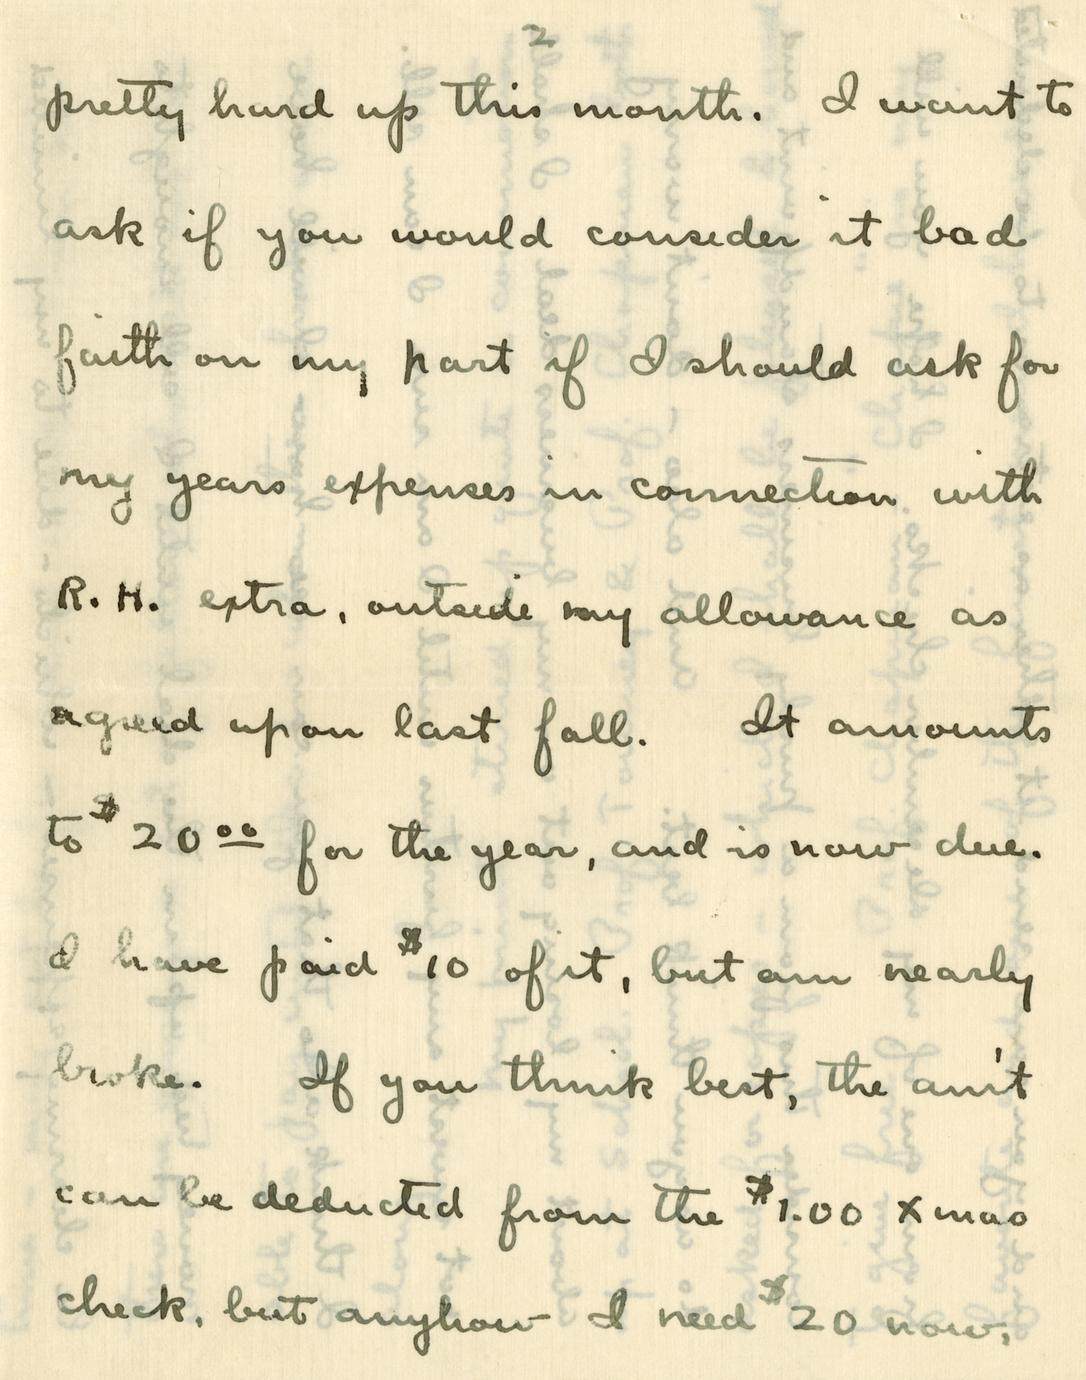 2
pretty hard up this month. I want to
ask if you would consider it bad
faith on my part if I should ask for
my years expenses in connection with
R. H. extra, outside my allowance as
agreed upon last fall. It amounts
to $20.00 for the year, and is now due.
I have paid $10 of it, but am nearly
broke. If you think best, the am't
can be deducted from the $1.00 Xmas
check, but anyhow I need $20 now,